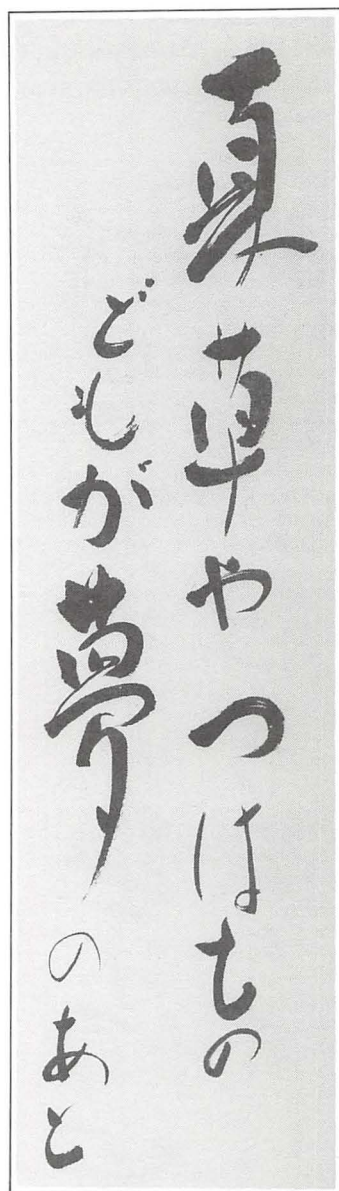 夏草やつはもの
どもが夢のあと